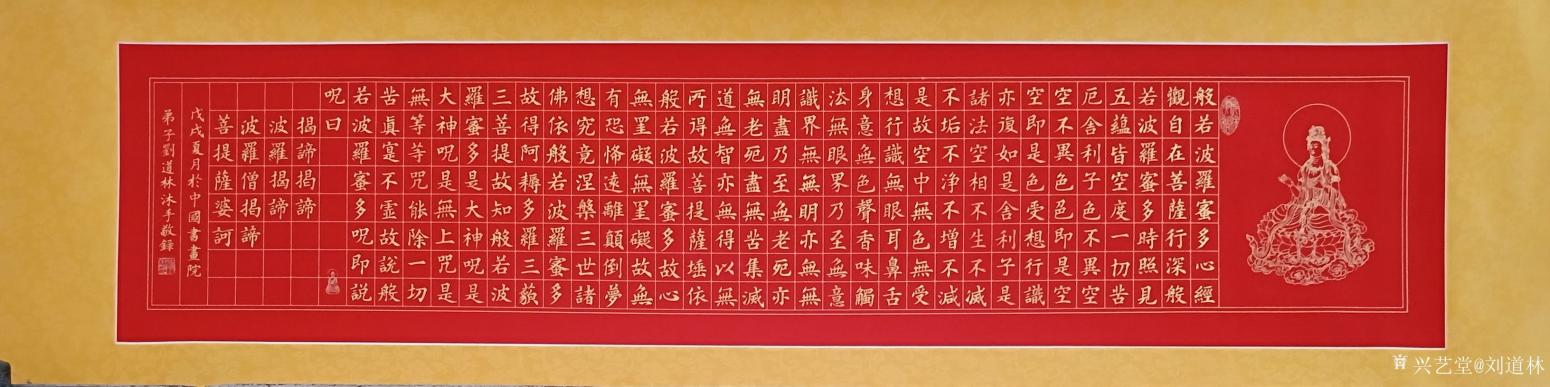 般若波羅蜜多心經
觀自在菩薩行深般
若波羅蜜多時照見
五蘊皆空度一切苦
厄舍利子色不異空
空不異色色即是空
空即是色受想行識
亦復如是舍利子是
諸法空相不生不滅
不垢不淨不增不減
是故空中無色無受
想行識無眼耳鼻舌
身意無色聲香味觸
法無眼界乃至無意
識界無無明亦無無
明盡乃至無老死亦
無老死盡無苦集滅
道無智亦無得以無
所得故菩提薩埵依
般若波羅蜜多故心
無罣礙無罣礙故無
有恐怖遠離顛倒夢
想究竟涅槃三世諸
佛依般若波羅蜜多
故得阿耨多羅三藐
三菩提故知般若波
羅蜜多是大神呪是
大神呪是無上咒是
無等等咒能除一切
苦真寔不虛故說般
若波羅蜜多呪即說
呪曰
揭諦揭諦
波羅揭諦
波羅僧揭諦
菩提薩婆訶
戊戌夏月於中國書畫院
弟子劉道林沐手敬錄
兴艺堂@刘道林